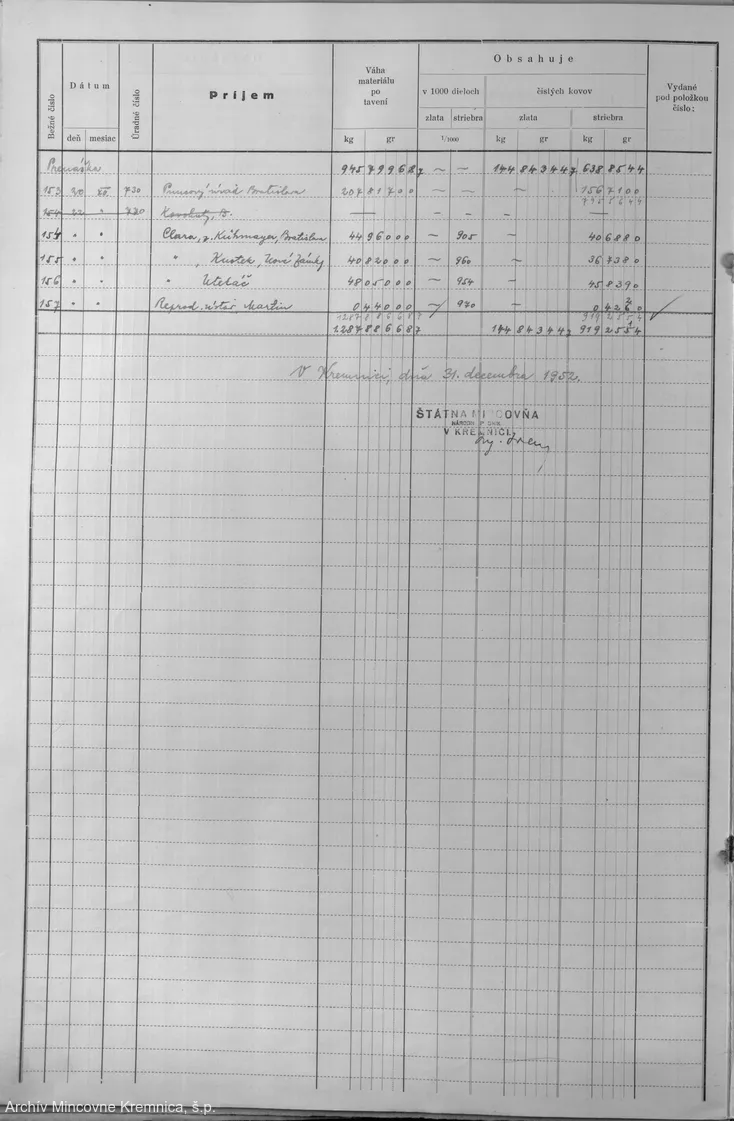 Obsahuje
Bežné číslo
Dátum
Úradné číslo
Príjem
Váha materiálu po tavení
v 1000 dieloch
čistých kovov
Vydané pod položkou číslo:
zlata striebra zlata striebra
deň mesiac kg gr 1/1000 kg gr kg gr
Prenáška 945 7996 87 ~ — 144 84344 7 638 8544
153 20 XII 730 Puncový úrad Bratislava 207 81700 ~ ~ ~ 156 7100
795 5644
154 22 " 720 — —
154 " " Clara, z. Kühmayer, Bratislava 44 96000 ~ 905 — 40 6880
155 " " " , Kustek, Nové Zámky 40 82000 ~ 960 — 36 7380
156 " " " 48 05000 ~ 954 — 45 8390
157 " " Reprod. ústav Martin 0 44000 ~ 970 — 0 4260
1287 88668 7 919 2554
1287 88668 7 144 84344 7 919 2554
V Kremnici, dňa 31. decembra 1952.
ŠTÁTNA MINCOVŇA
NÁRODNÝ PODNIK
V KREMNICI
Archív Mincovne Kremnica, š.p.